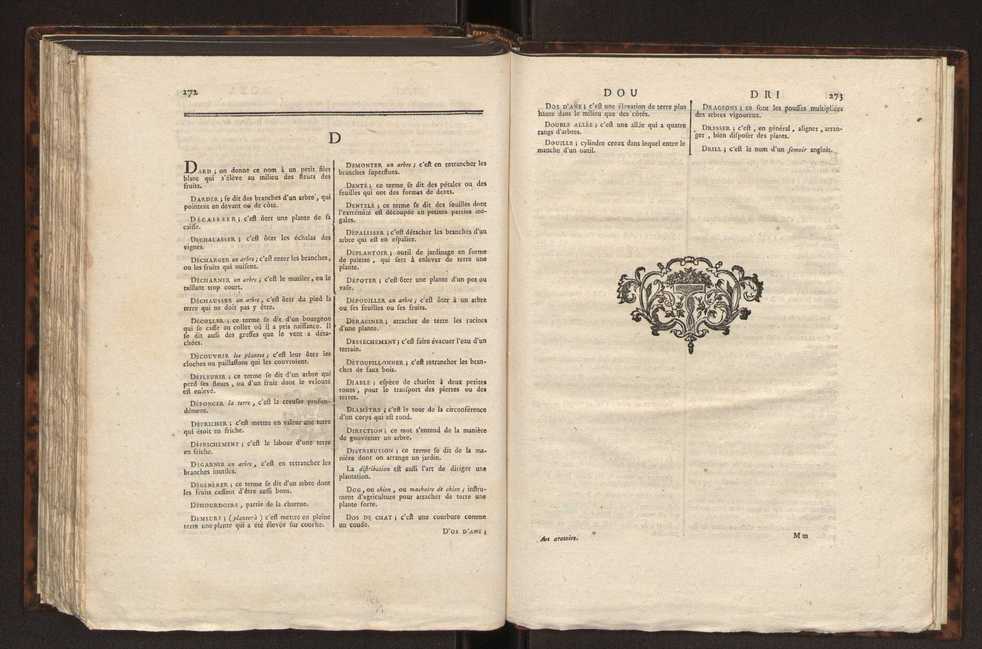 272
D
DARD ; on donne ce nom à un petit filet
blanc qui s'élève au milieu des fleurs des
fruits.
DARDER ; se dit des branches d'un arbre, qui
pointent en devant ou de côté.
DÉCAISSER ; c'est ôter une plante de sa
caisse.
DÉCHALASSER ; c'est ôter les échalas des
vignes.
DÉCHARGER un arbre ; c'est ôter les branches,
ou les fruits qui nuisent.
DÉCHARNER un arbre ; c'est le mutiler, en le
taillant trop court.
DÉCHAUSSER un arbre, c'est ôter du pied la
terre qui ne doit pas y être.
DÉCOLLER ; ce terme se dit d'un bourgeon
qui se casse au collet où il a pris naissance. Il
se dit aussi des greffes que le vent a déta-
chées.
DÉCOUVRIR les plantes ; c'est leur ôter les
cloches ou paillassons qui les couvroient.
DÉFLEURIR ; ce terme se dit d'un arbre qui
perd ses fleurs, ou d'un fruit dont le velouté
est enlevé.
DÉFONCER la terre, c'est la creuser profon-
dément.
DÉFRICHER ; c'est mettre en valeur une terre
qui étoit en friche.
DÉFRICHEMENT ; c'est le labour d'une terre
en friche.
DÉGARNIR un arbre, c'est en retrancher les
branches inutiles.
DÉGÉNÈRE ; ce terme se dit d'un arbre dont
les fruits cessent d'être aussi bons.
DEHOURDOIRE, partie de la charrue.
DEMEURE ; (planter à) c'est mettre en pleine
terre une plante qui a été élevée sur couche.
DÉMONTER un arbre ; c'est en retrancher les
branches superflues.
DENTÉ ; ce terme se dit des pétales ou des
feuilles qui ont des formes de dents.
DENTELÉ ; ce terme se dit des feuilles dont
l'extrémité est découpée en petites parties iné-
gales.
DÉPALISSER ; c'est détacher les branches d'un
arbre qui est en espalier.
DÉPLANTOIR ; outil de jardinage en forme
de palette, qui sert à enlever de terre une
plante.
DÉPOTER ; c'est ôter une plante d'un pot ou
vase.
DÉPOUILLER un arbre ; c'est ôter à un arbre
ou ses feuilles ou ses fruits.
DÉRACINER ; arracher de terre les racines
d'une plante.
DESSÉCHEMENT ; c'est faire évacuer l'eau d'un
terrain.
DÉTOUPILLONNER ; c'est retrancher les bran-
ches de faux bois.
DIABLE ; espèce de chariot à deux petites
roues, pour le transport des pierres ou des
terres.
DIAMÈTRE ; c'est le tour de la circonférence
d'un corps qui est rond.
DIRECTION ; ce mot s'entend de la manière
de gouverner un arbre.
DISTRIBUTION ; ce terme se dit de la ma-
nière dont on arrange un jardin.
La distribution est aussi l'art de diriger une
plantation.
DOG, ou chien, ou machoire de chien ; instru-
ment d'agriculture pour arracher de terre une
plante forte.
DOS DE CHAT ; c'est une courbure comme
un coude.
D'OS D'ANE ;
DOU
DRI
273
DOS D'ANE ; c'est une élévation de terre plus
haute dans le milieu que des côtés.
DOUBLE ALLÉE ; c'est une allée qui a quatre
rangs d'arbres.
DOUILLE ; cylindre creux dans lequel entre le
manche d'un outil.
DRAGEONS ; ce sont les pousses multipliées
des arbres vigoureux.
DRESSER ; c'est, en général, aligner, arran-
ger, bien disposer des plants.
DRILL ; c'est le nom d'un semoir anglois.
Art aratoire.
M m